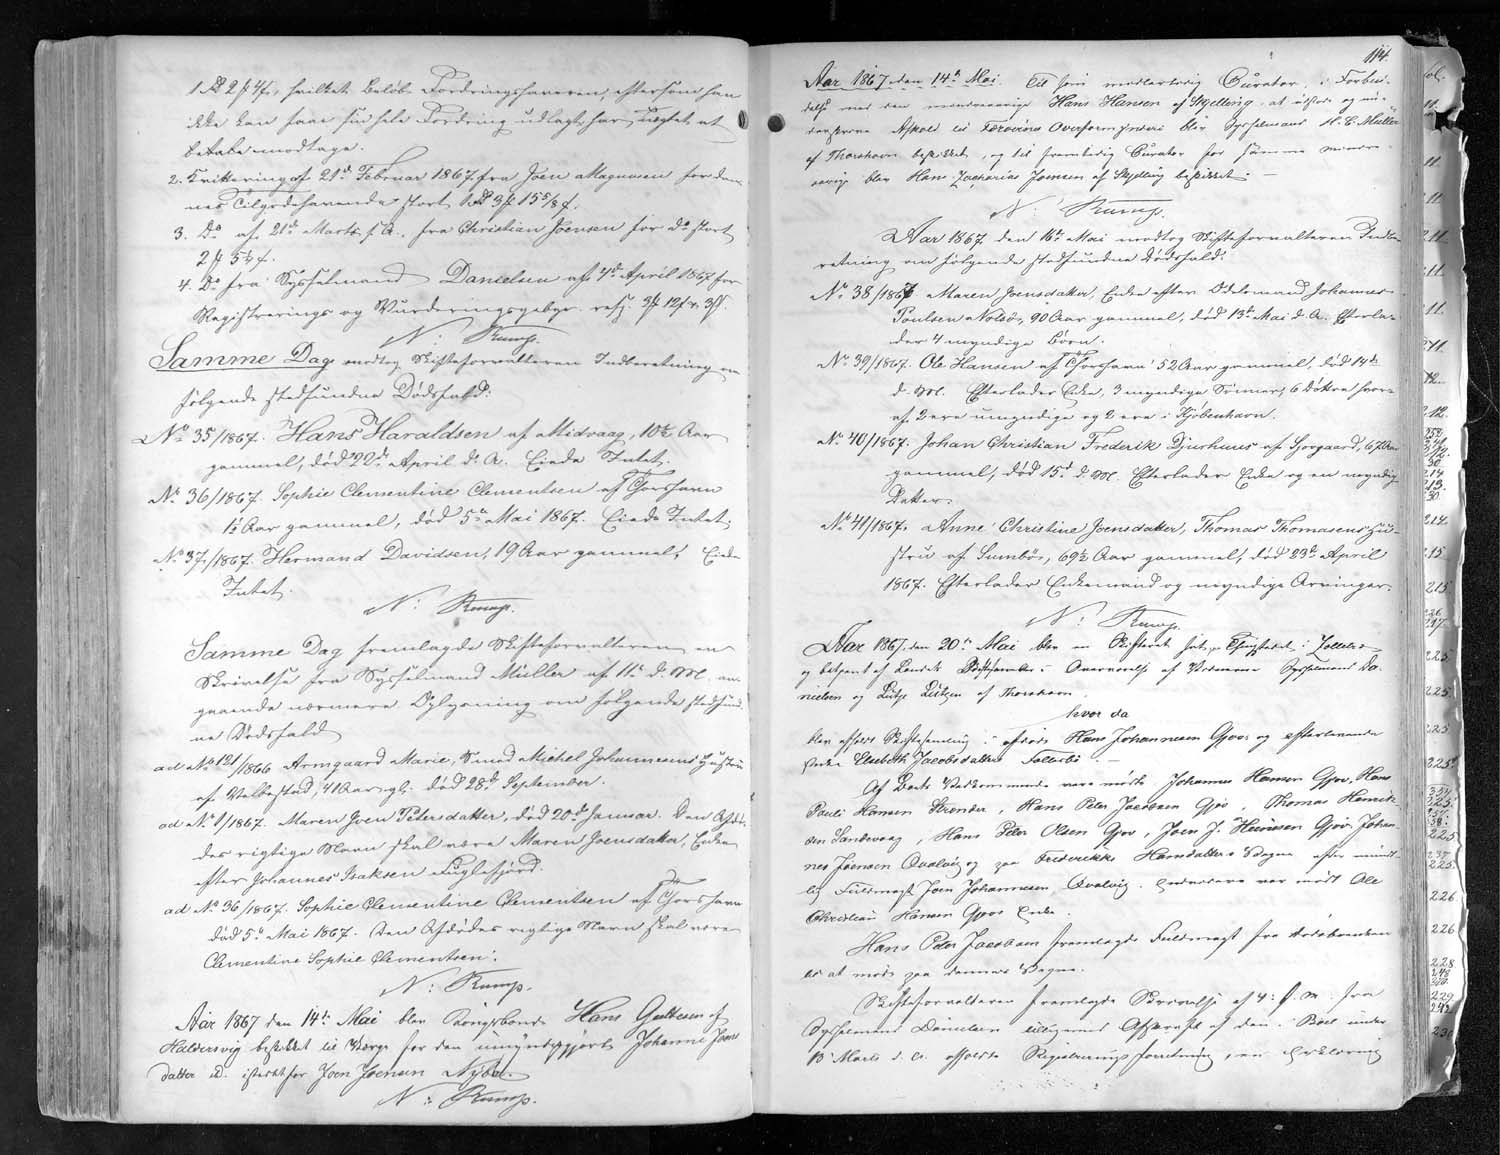 1 Rd 2 ƒ 4/, hvilket Beløb Fordringshaveren, eftersom han
ikke kan faae sin hele Fordring udlagt, har nægtet at
betale modtage.
2. Kvittering af 21de Februar 1867 fra Joen Magnusen for den-
nes Tilgodehavende stort 1 Rd 3 ƒ 15 5/8 ƒ.
3. Do af 21de Marts f. A. fra Christian Joensen for do stort
2 ƒ 5 ƒ.
4. Do fra Sysselmand Danielsen af 4de April 1867 for
Registrerings og Vurderingsgebyr resp. 3 ƒ 12 ƒ & 3 ƒ.
N: Rump.
Samme Dag modtog Skifteforvalteren Indberetning om
følgende stedfundne Dødsfald:
No 35/1867. Hans Haraldsen af Midvaag, 10½ Aar
gammel, død 22de April d. A. Eiede Intet.
No 36/1867. Sophie Clementine Clementsen af Thorshavn
1½ Aar gammel, død 5te Mai 1867. Eiede Intet.
No 37/1867. Hermand Davidsen, 19 Aar gammel, Eiede
Intet.
N: Rump.
Samme Dag fremlagde Skifteforvalteren en
Skrivelse fra Sysselmand Müller af 11te d. M. an-
gaaende nærmere Oplysning om følgende stedfund-
ne Dødsfald
ad No 121/1866 Armgaard Marie, Smed Michel Johannesens Hustru
af Velbestad, 41 Aar gl. død 28de September.
ad No 1/1867. Maren Joen Petersdatter, død 20de Januar. Den Afdø-
des rigtige Navn skal være Maren Joensdatter, Enke
efter Johannes Isaksen Fuglefjord.
ad No 36/1867. Sophie Clementine Clementsen af Thorshavn
død 5te Mai 1867. Den Afdødes rigtige Navn skal være
Clementine Sophie Clementsen.
N: Rump.
Aar 1867 den 14de Mai blev Kongsbonde Hans Guttesen af
Haldersvig beskikket til Værge for den umyndiggjorte Johanne Joens-
datter isteddfor Joen Joensen Nybo.
N: Rump.
114.
Aar 1867 den 14de Mai. Til som midlertidig Curator i Forbin-
delse med den mindreaarige Hans Hansen af Skjelling at udstede og un-
derskrive Afkald til Færøernes Overformynderi blev Sysselmand H. C. Müller
af Thorshavn beskikket, og til fremtidig Curator for samme mindre-
aarige blev Hans Zacharias Joensen af Skjelling beskikket.
N: Rump.
Aar 1867 den 16de Mai modtog Skifteforvalteren Indbe-
retning om følgende stedfundne Dødsfald:
No 38/1867. Maren Joensdatter, Enke efter Odelsmand Johannes
Poulsen Nolsø, 90 Aar gammel, død 13de Mai d. A. Efterla-
der 4 myndige Børn.
No 39/1867. Ole Hansen af Thorshavn 52 Aar gammel, død 14de
d. M. Efterlader Enke, 3 myndige Sønner, 6 Døttre hvor-
af 2 ere umyndige og 2 ere i Kjøbenhavn.
No 40/1867. Johan Christian Frederik Djurhuus af Sjorgaard, 67 Aar
gammel, død 15de d. M. Efterlader Enke og en myndig
Datter.
No 41/1867. Anne Christine Joensdatter, Thomas Thomasens Hu-
stru af Sumbø, 69½ Aar gammel, død 23de April
1867. Efterlader Enkemand og myndige Arvinger.
N: Rump.
Aar 1867, den 20de Mai blev en Skifteret sat paa Thingstedet i Tolleba
og betjent af Skifteforvalter i Overværelse af Vidnerne Sysselmand Da-
nielsen og Lützen af Thorshavn.
hvor da
blev afholdt Skiftesamling i afdøde Hans Johannesen Gjov og efterlevende
Enke Elsebeth Jacobsdatters Fællesbo.
Af Boets Vedkommende vare mødte Johannes Hansen Gjov, Hans
Pauli Hansen Strender, Hans Peter Jacobsen Gjov, Thomas Henrik-
sen Sandevaag, Hans Peter Olsen Gjov, Joen J. Hansen Gjov, Johan-
nes Joensen Qvalvig og paa Frederikke Hansdatters Vegne efter mundt-
lig Fuldmagt Joen Johannesen Qvalvig. Endvidere var mødt Ole
Christian Hansen Gjovs Enke.
Hans Peter Jacobsen fremlagde Fuldmagt fra
til at møde paa dennes Vegne.
Skifteforvalteren fremlagde Skrivelse af 4de f. M. fra
Sysselmand Danielsen tilligemed Afskrift af den i Boet under
13 Marts d. A. afholdte Registreringsforretning, en Erklæring